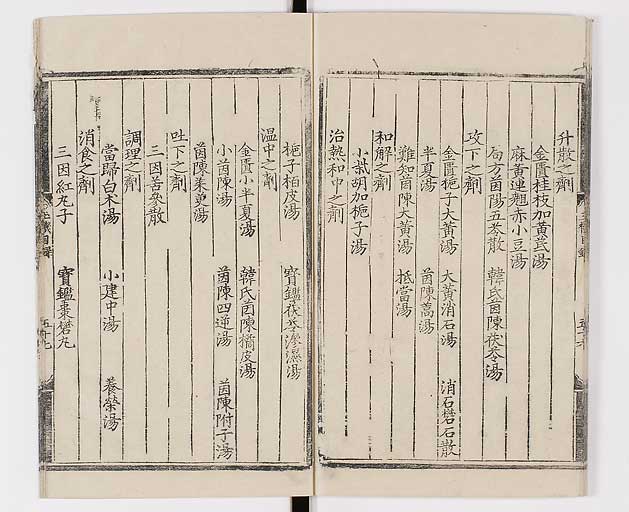 升散之劑
金匱桂枝加黄芪湯
麻黄連翹赤小豆湯
局方茵陽五苓散 韓氏茵陳茯苓湯
攻下之劑
金匱梔子大黄湯 大黄消石湯 消石礬石散
半夏湯 茵陳蒿湯
難知茵陳大黄湯 抵當湯
和解之劑
小柴胡加梔子湯
治熱和中之劑
梔子栢皮湯 寳鑑茯苓滲濕湯
温中之劑
金匱小半夏湯 韓氏茵陳橘皮湯
小茵陳湯 茵陳四逆湯 茵陳附子湯
茵陳茱萸湯
吐下之劑
三因苦參散
調理之劑
當歸白朮湯 小建中湯 養榮湯
消食之劑
三因紅丸子 寳鑑棗礬丸